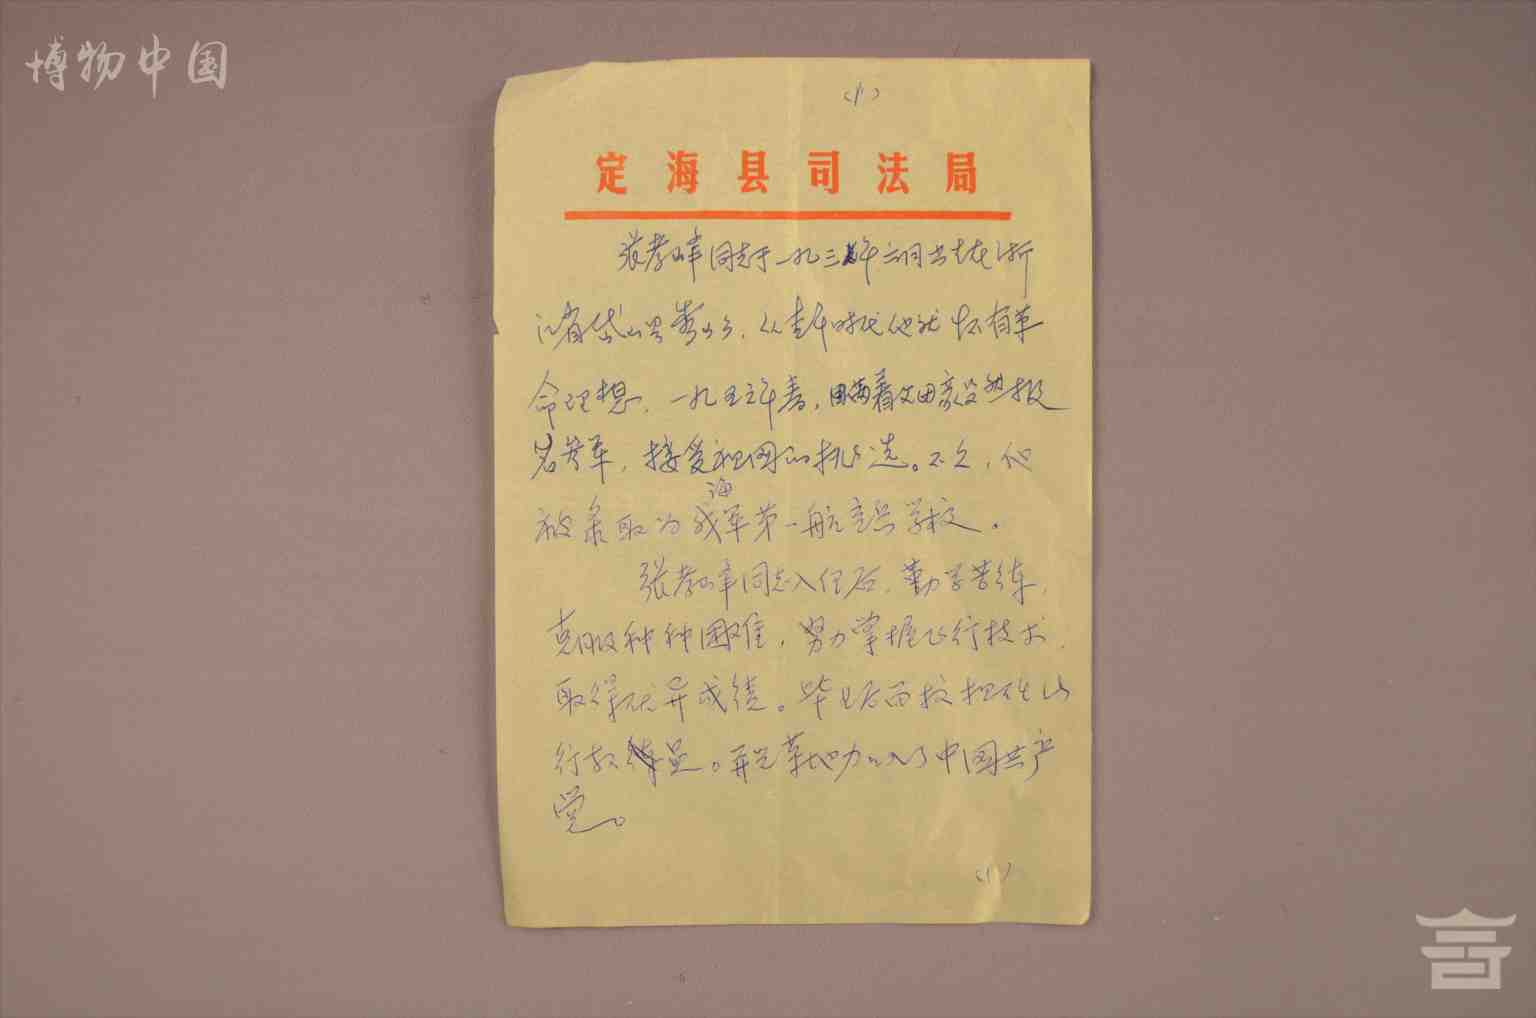 博物中国
(1)
定海县司法局
张孝峰同志于一九三年六月出生在浙
江省岱山县秀山乡，从青年时代他就怀有革
命理想，一九五六年春，瞒着父母毅然报
名参军，接受祖国的挑选。不久，他
海
被录取为我军第一航空兵学校。
张孝峰同志入伍后，勤学苦练，
克服种种困难，努力掌握飞行技术，
取得优异成绩。毕业后留校担任飞
行教员。并光荣地加入了中国共产
党。
(1)